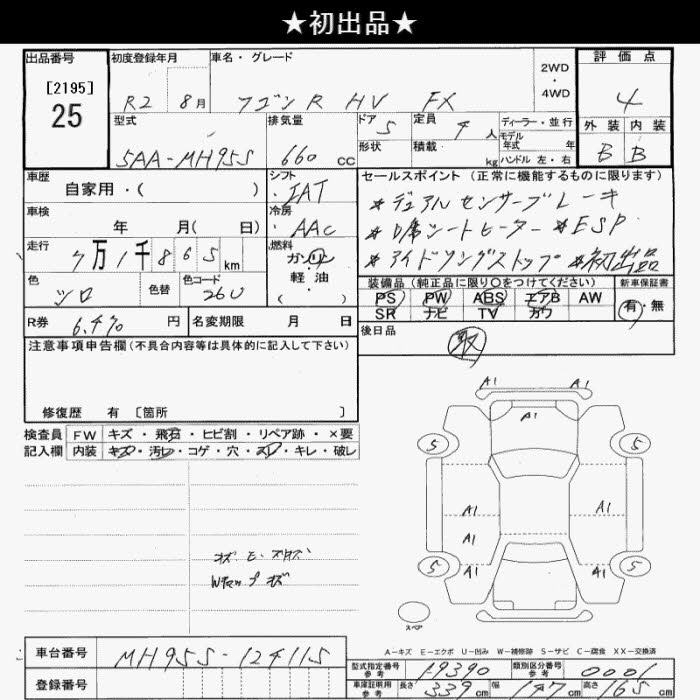 ★初出品★
出品番号 初度登録年月 車名・グレード 2WD・4WD 評価点
[2195]
25
R2 8月 ワゴンR HV FX 4
型式 排気量 ドア 5 定員 4人 ディーラー・並行 外装 内装
5AA-MH95S 660cc 形状 積載 kg モデル年式 年 ハンドル 左・右 B B
車歴 シフト セールスポイント (正常に機能するものに限ります)
自家用・( ) IAT ＊デュアルセンサーブレーキ
車検 冷房 ＊D席シートヒーター ＊ESP
年 月( 日) AAC ＊アイドリングストップ ＊初出品
走行 燃料
7万1千865km ガソリン・軽油・( )
色 色替 色コード 装備品 (純正品に限り○をつけてください) 新車保証書
シロ 26U PS PW ABS エアB AW 有・無
SR ナビ TV カワ
R券 6,490円 名変期限 月 日 後日品
取
注意事項申告欄 (不具合内容等は具体的に記入して下さい)
修復歴 有 [箇所 ]
検査員 FW キズ・飛石・ヒビ割・リペア跡・×要
記入欄 内装 キズ・汚レ・コゲ・穴・スレ・キレ・破レ
A1 A1
A1
5 5
A1 A1
A1
5 A1 A1 5
スペア
A-キズ E-エクボ U-凹み W-補修跡 S-サビ C-腐食 XX-交換済
車台番号 MH95S-124115
登録番号
型式指定番号 参考 19390 類別区分番号 参考 0001
車庫証明用 参考 長さ 339cm 幅 147cm 高さ 165cm